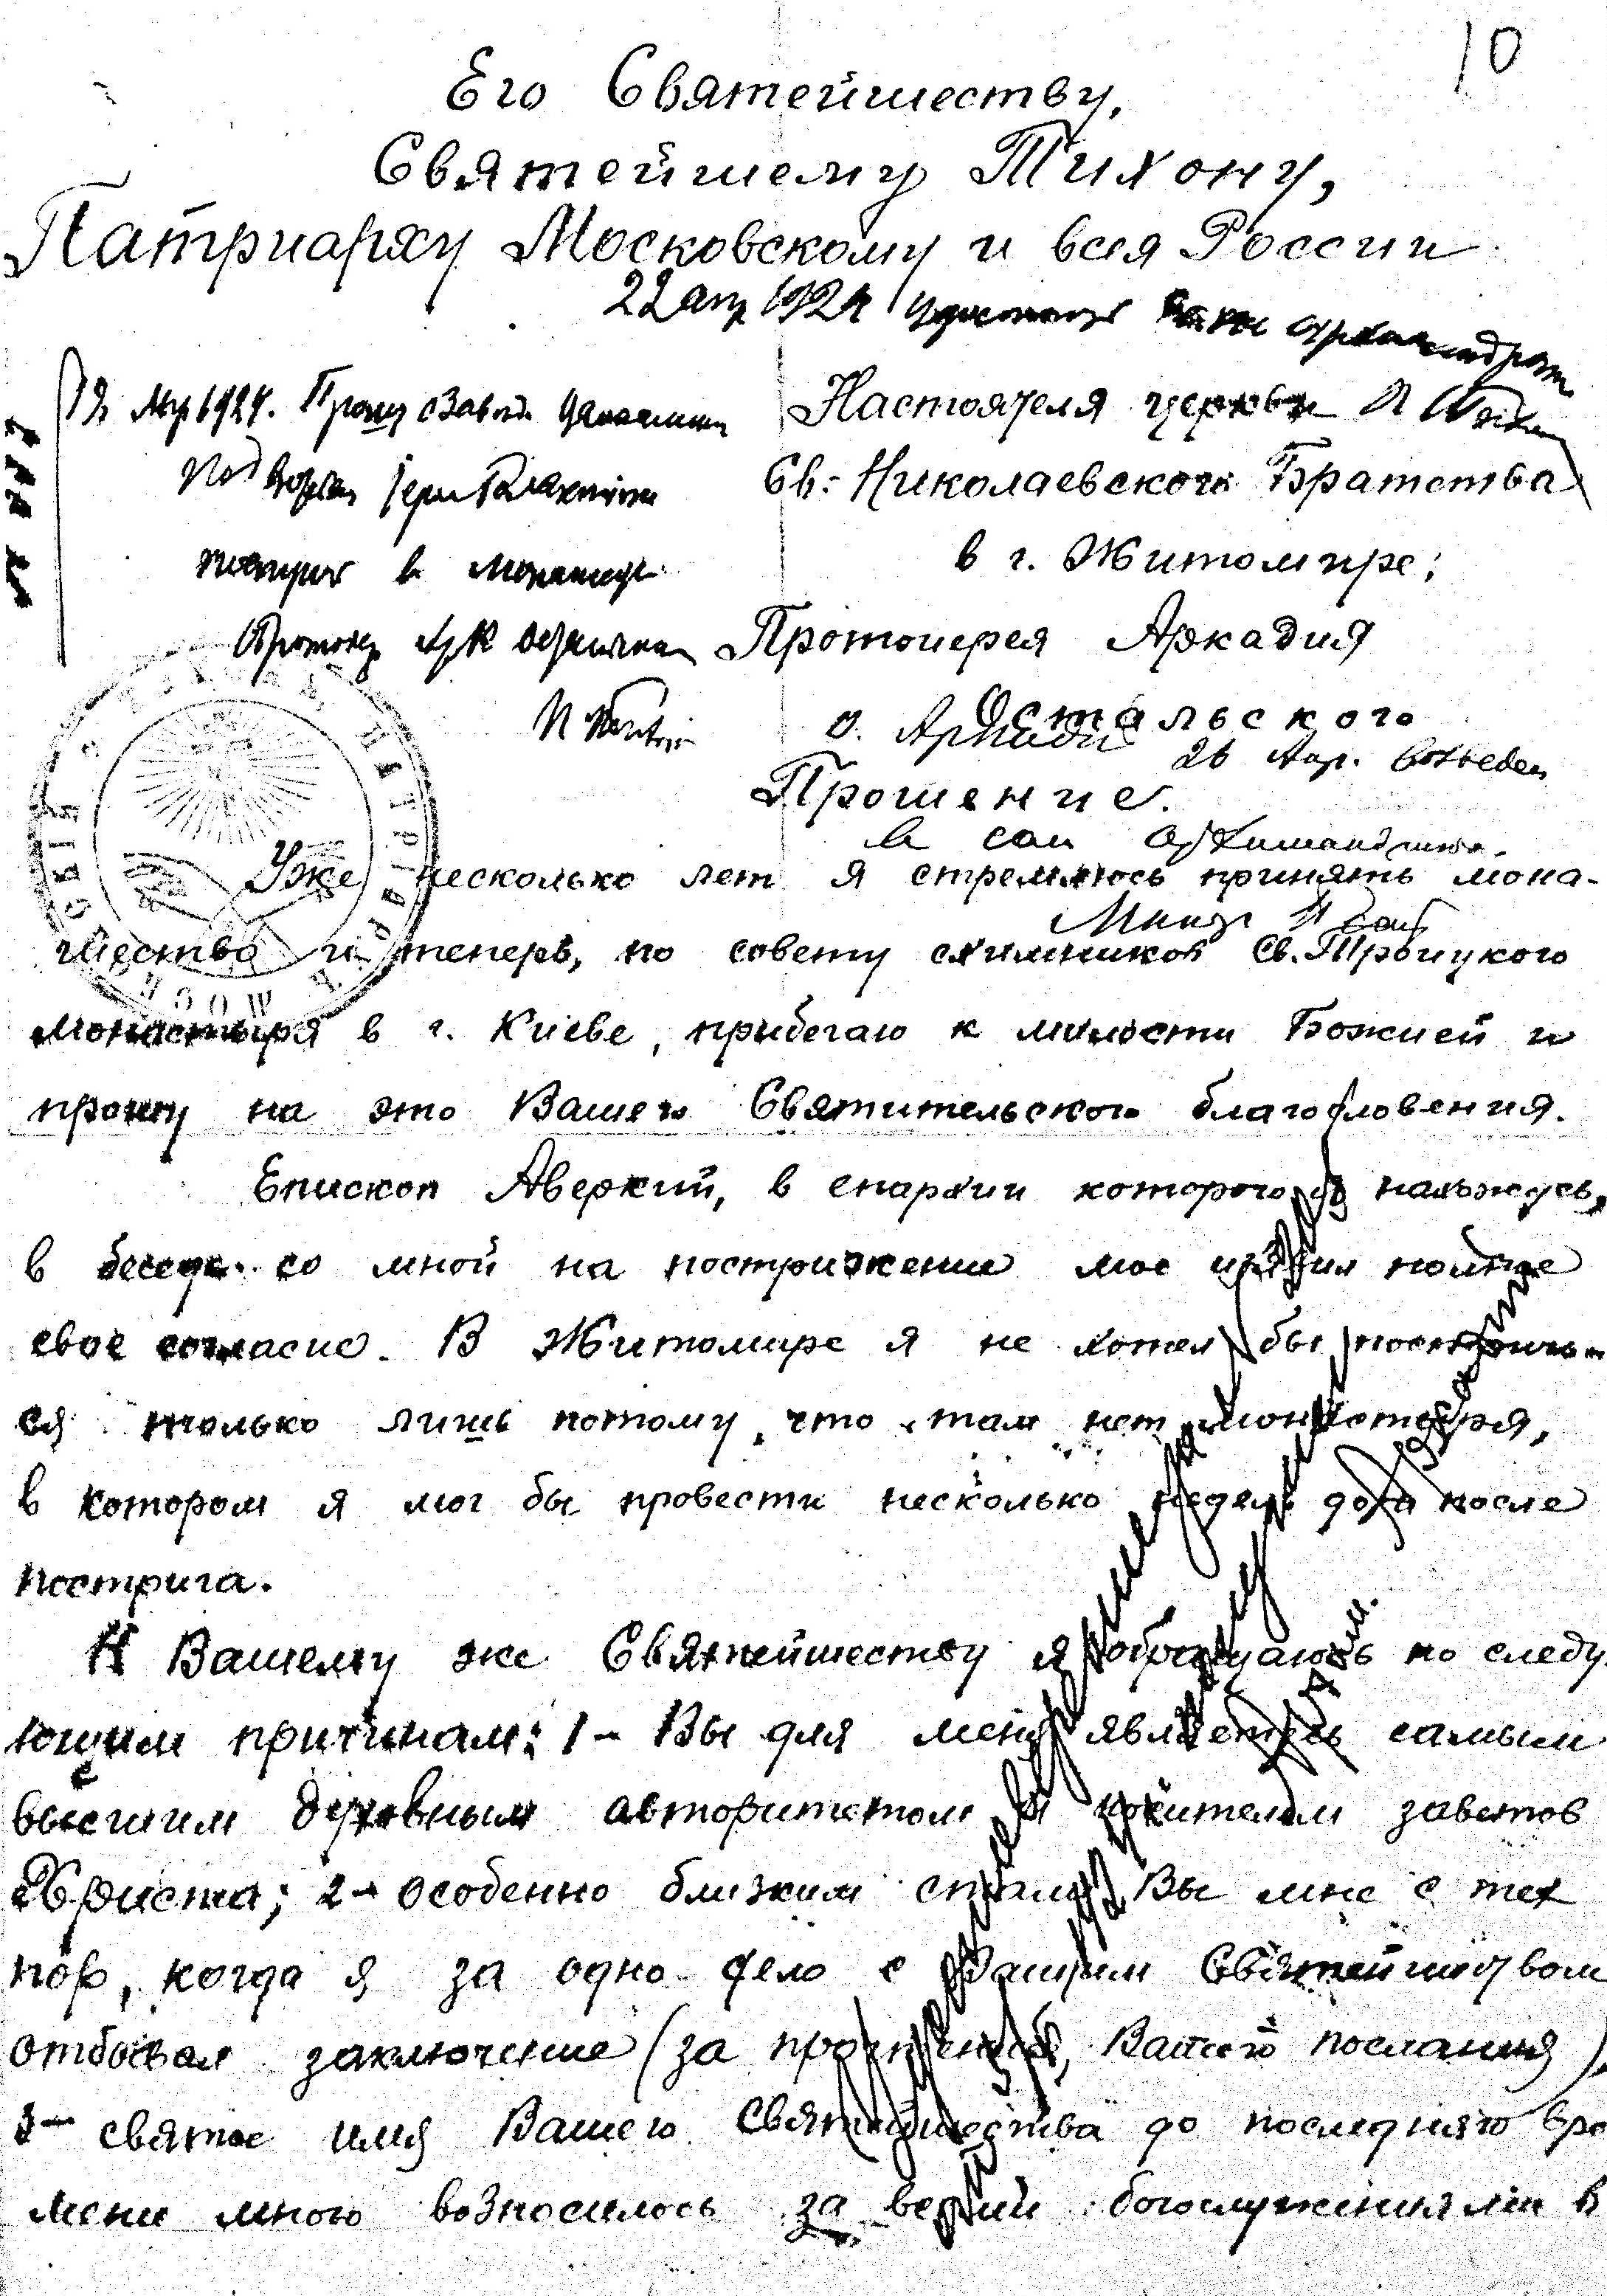 10
Его Святейшеству,
Святейшему Тихону,
Патриарху Московскому и всея России
22 апр 1924
1924. Прошу
Настоятеля церкви
Св: Николаевского Братства
в г. Житомире;
в
Протоиерея Аркадия
Остальского
о. Аркадий
26 Апр. возведен
Прошение.
в сан Архимандрита.
Уже несколько лет я стремлюсь принять мона-
шество и теперь, по совету схимников Св. Троицкого
монастыря в г. Киеве, прибегаю к милости Божией и
прошу на это Вашего Святительского благословения.
Епископ Аверкий, в епархии которого я нахожусь,
в беседе со мной на пострижение мое изъявил полное
свое согласие. В Житомире я не хотел бы постричь-
ся только лишь потому, что там нет монастыря,
в котором я мог бы провести несколько недель до и после
пострига.
К Вашему же Святейшеству я обращаюсь по следу
ющим причинам: 1- Вы для меня являетесь самым
высшим духовным авторитетом и носителем заветов
Христа; 2- особенно близким стали Вы мне с тех
пор, когда я за одно дело с Вашим Святейшеством
отбывал заключение (за прочтение Вашего послания),
3- святое имя Вашего Святейшества до последняго вре
мени мною возносилось за всеми богослужениями в